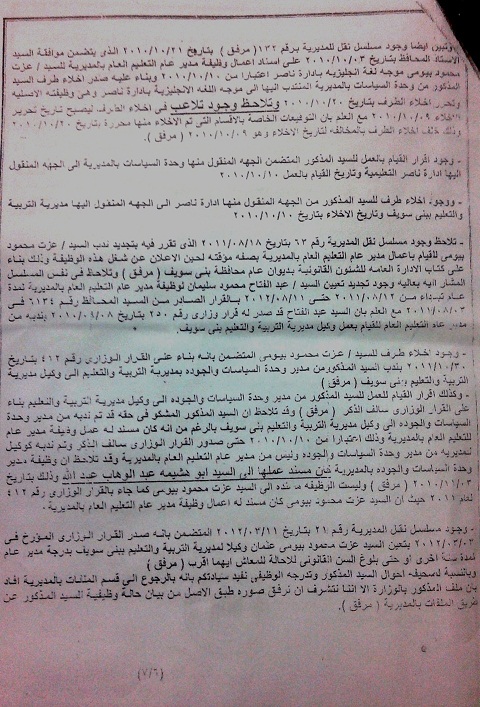 وتبين ايضا وجود مسلسل نقل للمديرية برقم ١٣٢ ( مرفق ) بتاريخ ٢٠١٠/١٠/٢١ الذى يتضمن موافقة السيد
الاستاذ المحافظ بتاريخ ٢٠١٠/١٠/٠٣ على اسناد اعمال وظيفة مدير عام التعليم العام بالمديرية للسيد / عزت
محمود بيومى موجه لغة انجليزية بادارة ناصر اعتبارا من ٢٠١٠/١٠/١٠ وبناء عليه صدر اخلاء طرف السيد
المذكور من وحدة السياسات بالمديرية المنتدب اليها الى موجه اللغه الانجليزية بادارة ناصر وهى وظيفته الاصليه
وتحرر اخلاء الطرف بتاريخ ٢٠١٠/١٠/٢٠ وتلاحظ وجود تلاعب فى اخلاء الطرف ليصبح تاريخ تحرير
الاخلاء ٢٠١٠/١٠/٠٩ مع العلم بان التوقيعات الخاصة بالاقسام التى تم الاخلاء منها محررة بتاريخ ٢٠١٠/١٠/٢٠
وذلك خلف اخلاء الطرف بالمخالفه لتاريخ الاخلاء وهو ٢٠١٠/١٠/٠٩ ( مرفق ).
- وجود اقرار القيام بالعمل للسيد المذكور المتضمن الجهه المنقول منها وحدة السياسات بالمديرية الى الجهه المنقول
اليها ادارة ناصر التعليمية وتاريخ القيام بالعمل ٢٠١٠/١٠/١٠
- ووجود اخلاء طرف للسيد المذكور من الجهه المنقول منها ادارة ناصر الى الجهه المنقول اليها مديرية التربية
والتعليم ببنى سويف وتاريخ الاخلاء بتاريخ ٢٠١٠/١٠/١٠
- تلاحظ وجود مسلسل نقل المديرية رقم ٦٣ بتاريخ ٢٠١١/٠٨/١٨ الذى تقرر فيه بتجديد ندب السيد / عزت محمود
بيومى للقيام باعمال مدير عام التعليم العام بالمديرية بصفه مؤقته لحين الاعلان عن شغل هذه الوظيفة وذلك بناء
على كتاب الادارة العامه للشئون القانونية بديوان عام محافظة بنى سويف ( مرفق ) وتلاحظ فى نفس المسلسل
المشار اليه بعاليه وجود تجديد تعيين السيد / عبد الفتاح محمود سليمان لوظيفة مدير عام التعليم العام بالمديرية لمدة
عام تبدأء من ٢٠١١/٠٨/١٢ حتى ٢٠١٢/٠٨/١١ بالقرار الصادر من السيد المحافظ رقم ٦١٣٤ فى
٢٠١١/٠٨/٠٣ مع العلم بان السيد عبد الفتاح قد صدر له قرار وزارى رقم ٢٥٠ بتاريخ ٢٠١٠/٠٩/٠٨ وندبه من
مدير عام التعليم العام للقيام بعمل وكيل مديرية التربية والتعليم بنى سويف.
- وجود اخلاء طرف للسيد / عزت محمود بيومى المتضمن بانه بناء على القرار الوزارى رقم ٤١٢ بتاريخ
٢٠١١/١٠/٣٠ بندب السيد المذكور من مدير وحدة السياسات والجوده بمديرية التربية والتعليم الى وكيل مديرية
التربية والتعليم بنى سويف ( مرفق )
- وكذلك اقرار القيام للعمل للسيد المذكور من مدير وحدة السياسات والجوده الى وكيل مديرية التربية والتعليم بناء
على القرار الوزارى سالف الذكر ( مرفق ) وقد تلاحظ ان السيد المذكور المشكو فى حقه قد تم ندبه من مدير وحدة
السياسات والجوده الى وكيل مديرية التربية والتعليم بنى سويف بالرغم من انه كان مسند له عمل وظيفة مدير عام
للتعليم العام بالمديرية وذلك اعتبارا من ٢٠١٠/١٠/١٠ حتى صدور القرار الوزارى سالف الذكر وتم ندبه كوكيل
للمديريه من مدير وحدة السياسات والجودة وليس من مدير عام التعليم العام بالمديرية وقد تلاحظ ان وظيفة مدير
وحدة السياسات والجوده بالمديرية كان مسند عملها الى السيد ابو هشيمه عبد الوهاب عبد الله وذلك بتاريخ
٢٠١٠/١١/٠٣ ( مرفق ) وليست الوظيفه مسنده الى السيد عزت محمود بيومى كما جاء بالقرار الوزارى رقم ٤١٢
لعام ٢٠١١ حيث ان السيد عزت محمود بيومى كان مسند له اعمال وظيفة مدير عام التعليم العام بالمديرية.
- وجود مسلسل نقل المديرية رقم ٢١ بتاريخ ٢٠١٢/٠٣/١١ المتضمن بانه صدر القرار الوزارى المؤرخ فى
٢٠١٢/٠٣/٠٣ بتعين السيد عزت محمود بيومى عثمان وكيلا لمديرية التربية والتعليم ببنى سويف بدرجة مدير عام
لمدة سنة اخرى او حتى بلوغ السن القانونى للاحالة للمعاش ايهما اقرب ( مرفق )
وبالنسبة لصحيفة احوال السيد المذكور وتدرجه الوظيفى نفيد سيادتكم بانه بالرجوع الى قسم الملفات بالمديرية افاد
بان ملف المذكور بالوزارة الا اننا نتشرف ان نرفق صوره طبق الاصل من بيان حالة وظيفية السيد المذكور عن
طريق الملفات بالمديرية ( مرفق ).
(٧/٦)